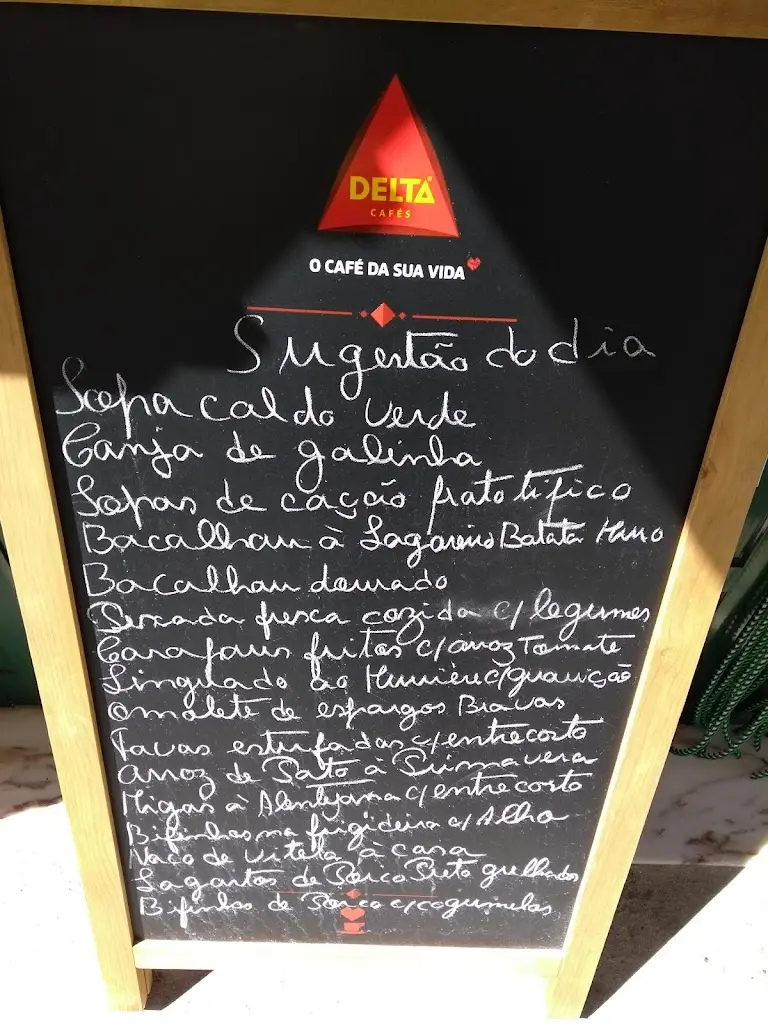 DELTA
CAFÉS
O CAFÉ DA SUA VIDA
Sugestão do dia
Sopa caldo verde
Canja de galinha
Sopas de cação prato tifico
Bacalhau à Lagareiro Batata Murro
Bacalhau dourado
Pescada fresca cozida c/ legumes
Carapaus fritos c/ arroz Tomate
Linguado ao c/ guarnição
Omolete de espargos Bravas
Favas estufadas c/ entrecosto
Arroz de Pato à Primavera
Migas à Alentejana c/ entrecosto
Bifinhos na frigideira c/ Alho
Naco de vitela à casa
Lagartos de Porco Preto grelhados
Bifinhos de Porco c/ cogumelos